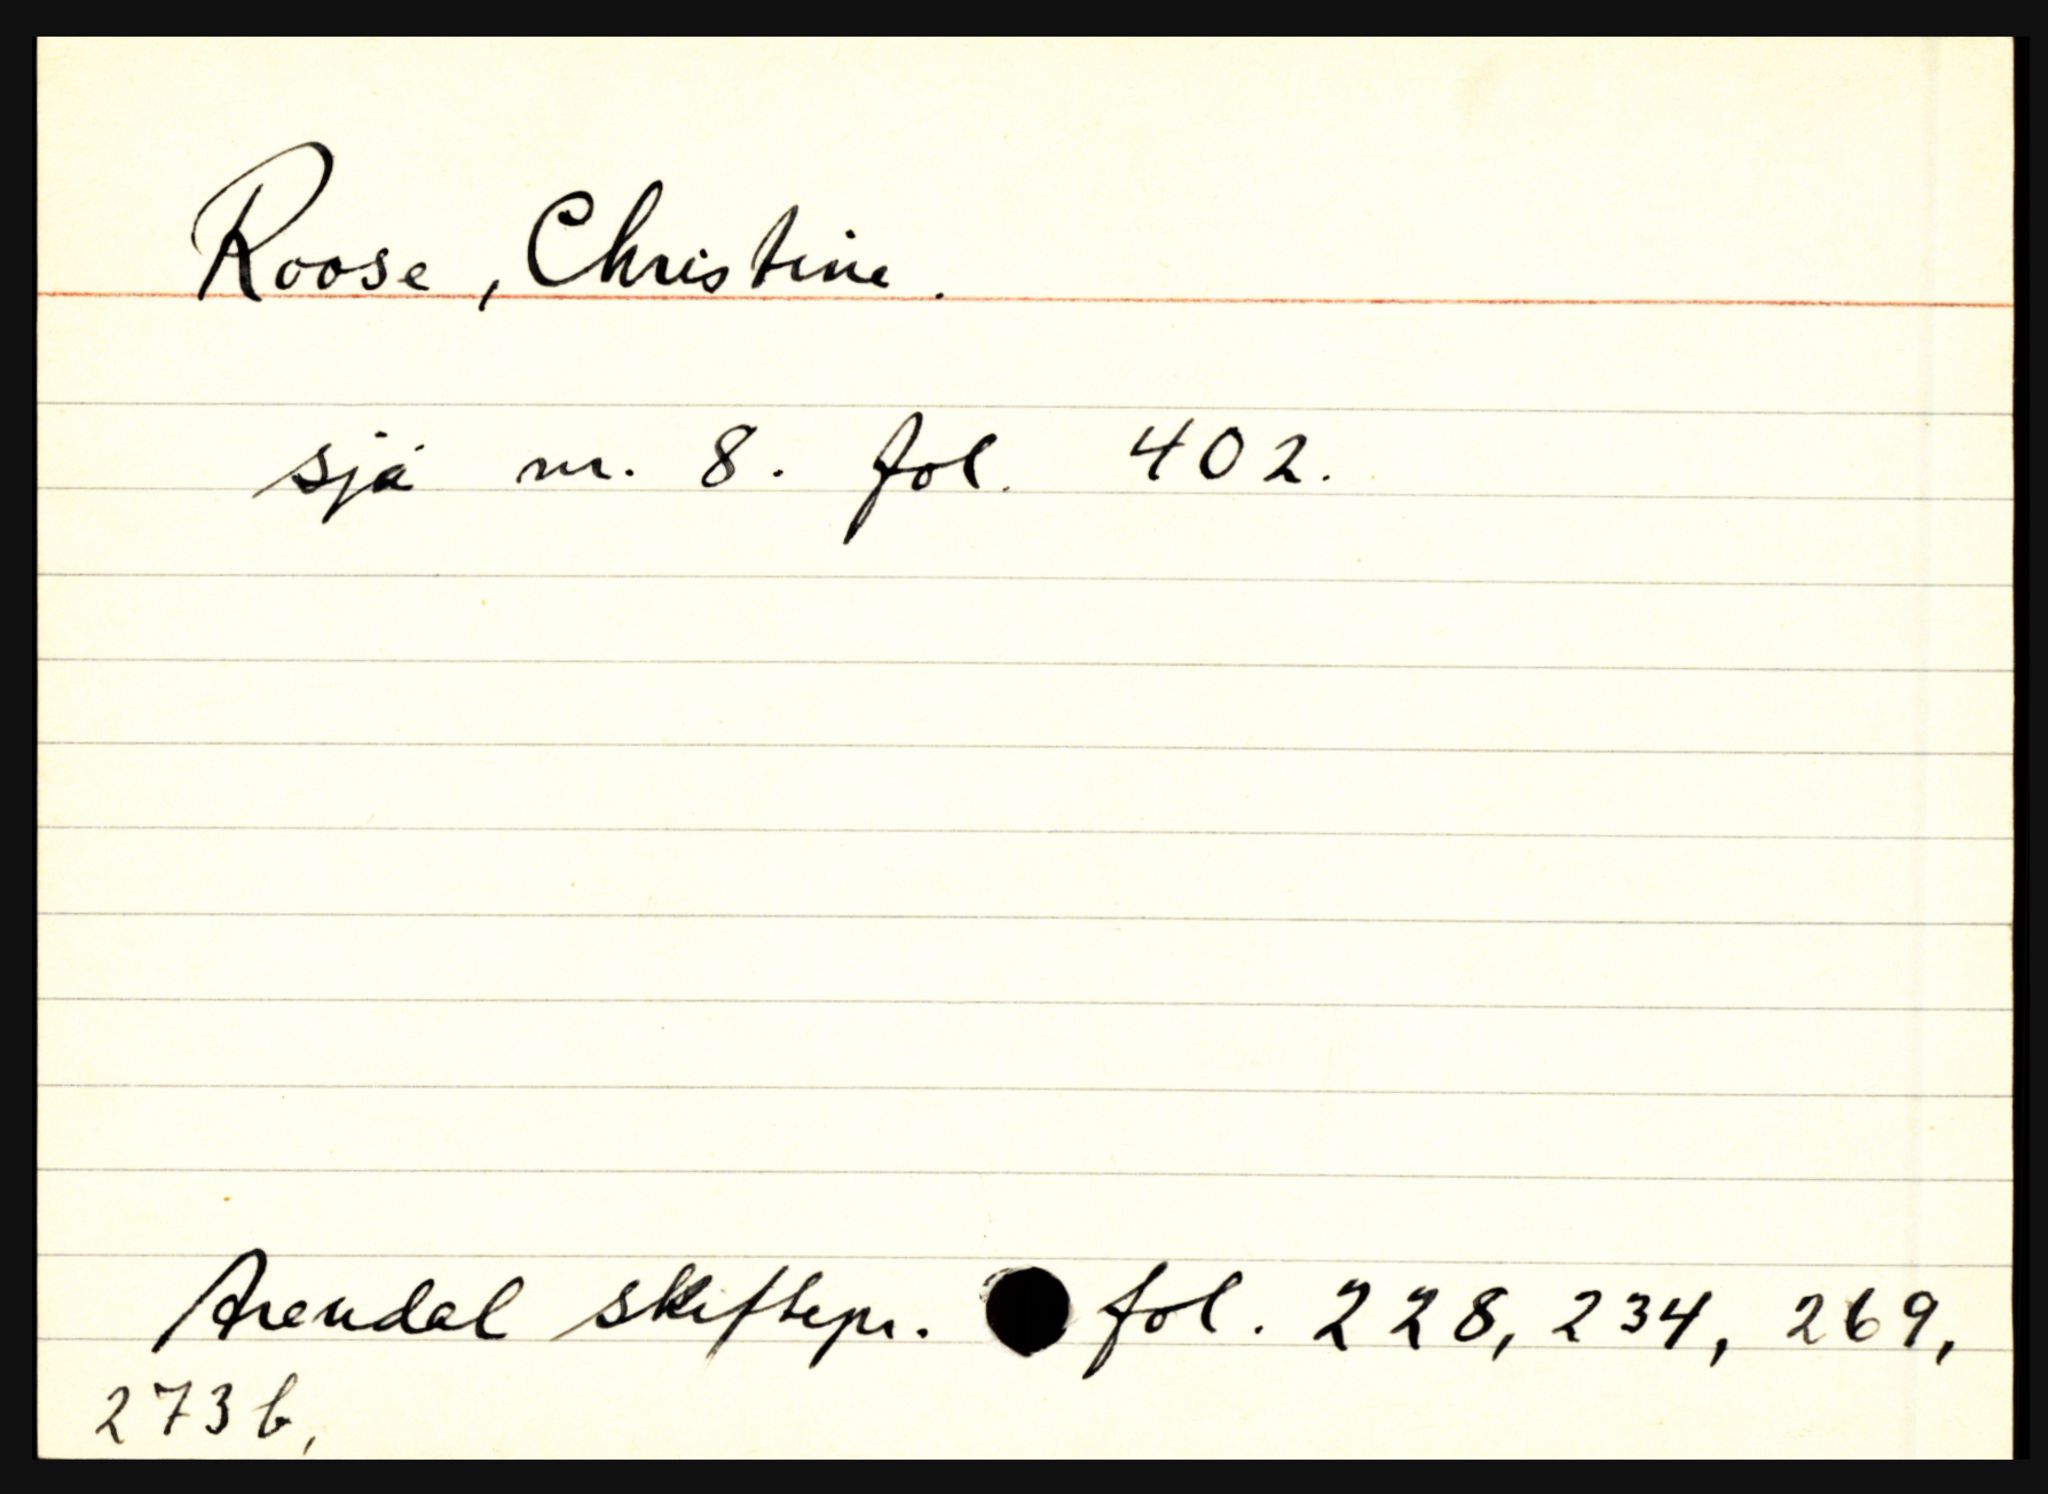 Roose, Christine.
sjå nr. 8. fol. 402.
Arendal skiftepr. fol. 228, 234, 269,
273b,